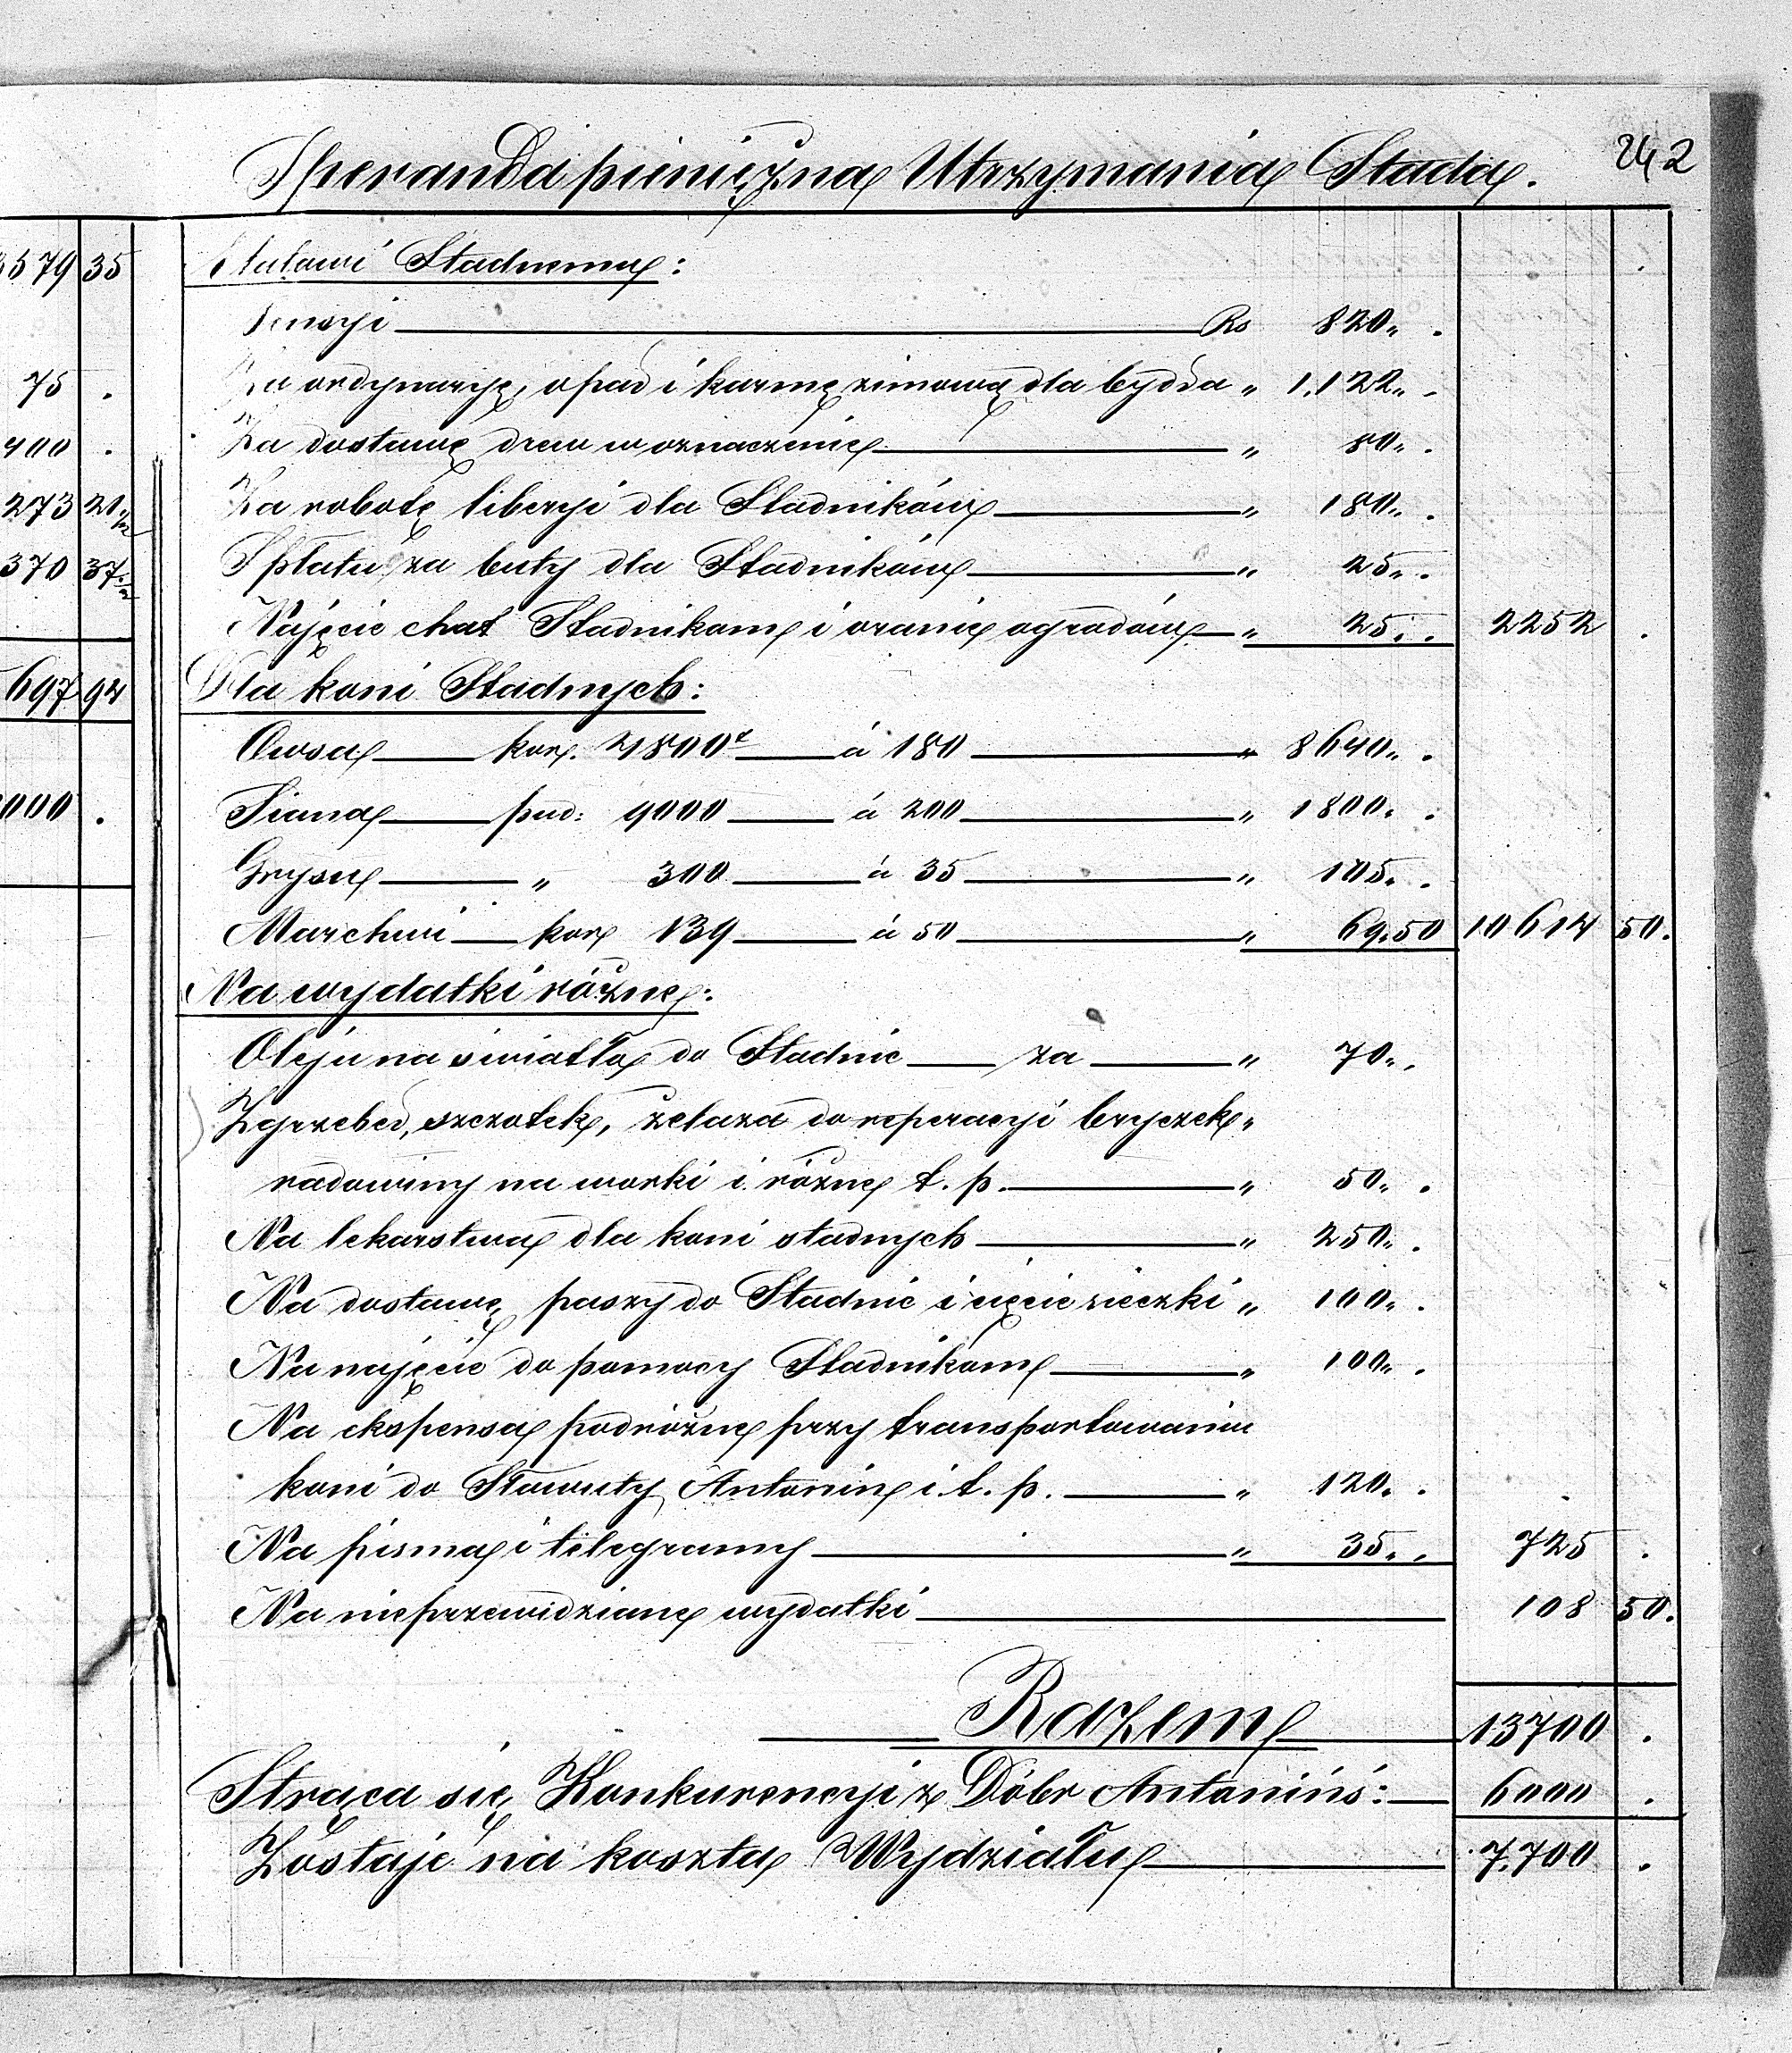 242
Speranda pieniężna Utrzymania Stada.
3579 35
75 .
400 .
273 21 1/2
370 37 1/2
697 94
000 .
Etatowi Stadnemu:
Pensyi Rs 820 " .
Na ordynaryę, opał i karmę zimową dla bydła " 1.122 " .
Za dostawę drew w oznaczenie " 80 " .
Za robotę liberyi dla Stadników " 180 " .
Spłatu za buty dla Stadników " 25 " .
Najęcie chat Stadnikom i oranie ogrodów " 25 " . 2252 .
Dla koni Stadnych:
Owsa kor. 4800 á 180 " 8640 " .
Siana pud: 9000 á 200 " 1800 " .
Grysu " 300 á 35 " 105 " .
Marchwi kor 139 á 50 " 69.50 10614 50.
Na wydatki różne:
Oleju na światło do Stadnic za " 70 " .
Zgrzebeł, szczotek, żelaza do reperacyi bryczek "
radowiny na worki i różne t. p. " 50 " .
Na lekarstwa dla koni stadnych " 250 " .
Na dostawę paszy do Stadnic i cięcie sieczki " 100 " .
Na najęcie do pomocy Stadnikom " 100 " .
Na ekspensa podróżne przy transportowaniu
koni do Sławuty, Antonin i. t. p. " 120 " .
Na pisma i telegramy " 35 " . 725 .
Na nieprzewidziane wydatki 108 50.
Razem 13700 .
Strąca się Konkurencyi z Dóbr Antonińs: 6000 .
Zostaje na koszta Wydziału 7.700 .